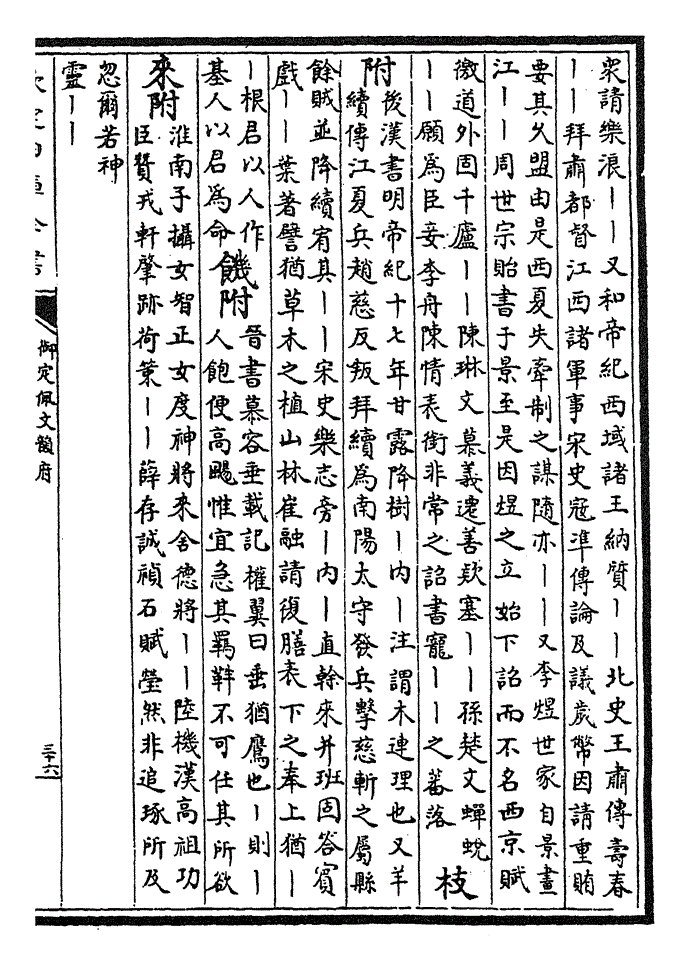 衆請樂浪——又和帝紀西域諸王納質——北史王肅傳壽春
——拜肅都督江西諸軍事宋史寇準傳論及議歲幣因請重賄
要其久盟由是西夏失牽制之謀隨亦——又李煜世家自景畫
江——周世宗貽書于景至是因煜之立始下詔而不名西京賦
徼道外固千廬——陳琳文慕義遷善欵塞——孫楚文蟬蛻
——願為臣妾李舟陳情表銜非常之詔書寵——之蕃落
枝
附
後漢書明帝紀十七年甘露降樹—内—注謂木連理也又羊
續傳江夏兵趙慈反叛拜續為南陽太守發兵擊慈斬之屬縣
餘賊並降續宥其——宋史樂志旁—内—直榦來并班固答賓
戲——葉著譬猶草木之植山林崔融請復膳表下之奉上猶—
—根君以人作
基人以君為命
饑附
晉書慕容垂載記權翼曰垂猶鷹也—則—
人飽便高颺惟宜急其羈靽不可任其所欲
來附
淮南子攝女智正女度神將來舍德將——陸機漢高祖功
臣贊戎軒肇跡荷策——薛存誠禎石賦瑩然非追琢所及
忽爾若神
靈——
御定佩文韻府
三十六